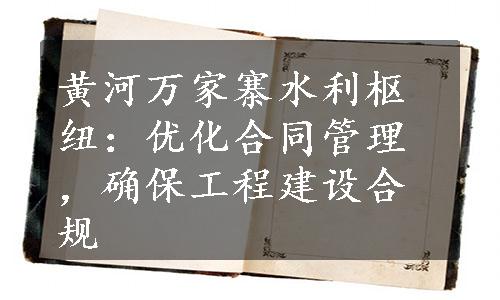 黄河万家寨水利枢
纽：优化合同管理
，确保工程建设合
规